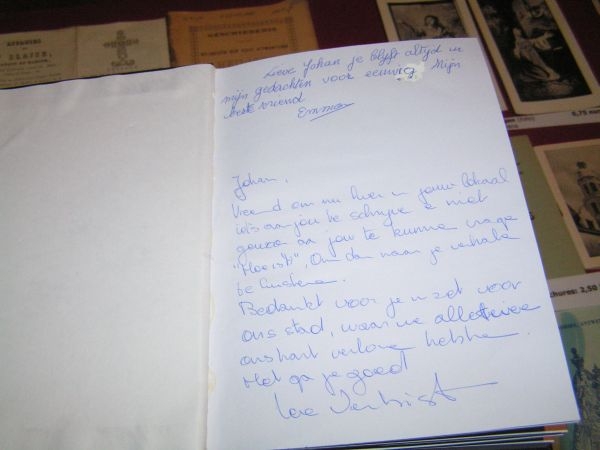 Lieve Johan je blijft altijd in
mijn gedachten voor eeuwig Mijn
beste vriend
Emma
Johan,
Vreemd om nu hier in jouw lokaal
iets aan jou te schrijve & niet
gewoon aa jou te kunne vrage
"Hoe ist". Om dan naar je verhale
te luistere.
Bedankt voor je inzet voor
ons stad, waar we alletwee
ons hart verlore hebbe.
Het ga je goed
Verhist
GESCHIEDENIS
0,75
chures: 2,50